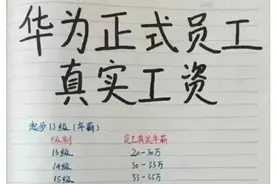 华为正式员工
真实工资
起步13级(年薪)
级别 员工真实年薪
13级 20-30万
14级 30-33万
15级 33-35万